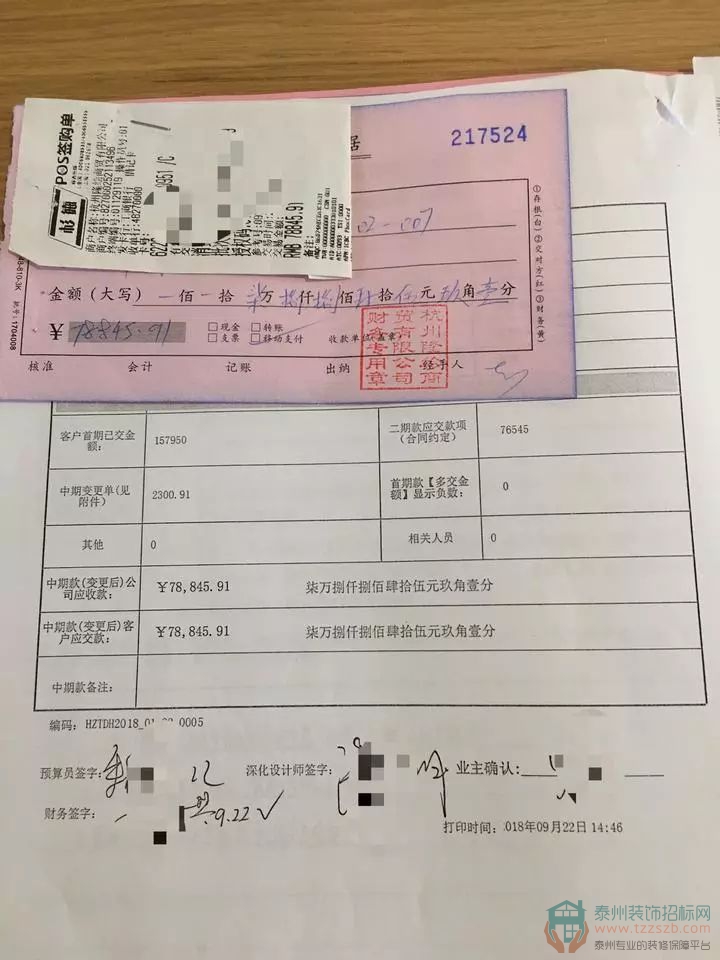 POS签购单
杉德
商户名称:杭州隆给商贸有限公司
RMB 78845.91
备注:
据
217524
02-007
金额（大写） 一佰一拾柒万捌仟捌佰肆拾伍元玖角壹分
¥ 78845.91
□现金 □转账
□支票 □移动支付
收款单位(盖章)
核准 会计 记账 出纳 经手人
①存根(白) ②交对方(红) ③财务(黄)
客户首期已交金额: 157950 二期款应交款项(合同约定) 76545
中期变更单(见附件) 2300.91 首期款【多交金额】显示负数: 0
其他 0 相关人员 0
中期款(变更后)公司应收款: ￥78,845.91 柒万捌仟捌佰肆拾伍元玖角壹分
中期款(变更后)客户应交款: ￥78,845.91 柒万捌仟捌佰肆拾伍元玖角壹分
中期款备注:
编码: HZTDH2018_0
0005
预算员签字: 深化设计师签字: 业主确认:
财务签字: 9.22
打印时间: 018年09月22日 14:46
泰州装饰招标网
www.tzzszb.com
泰州专业的装修保障平台